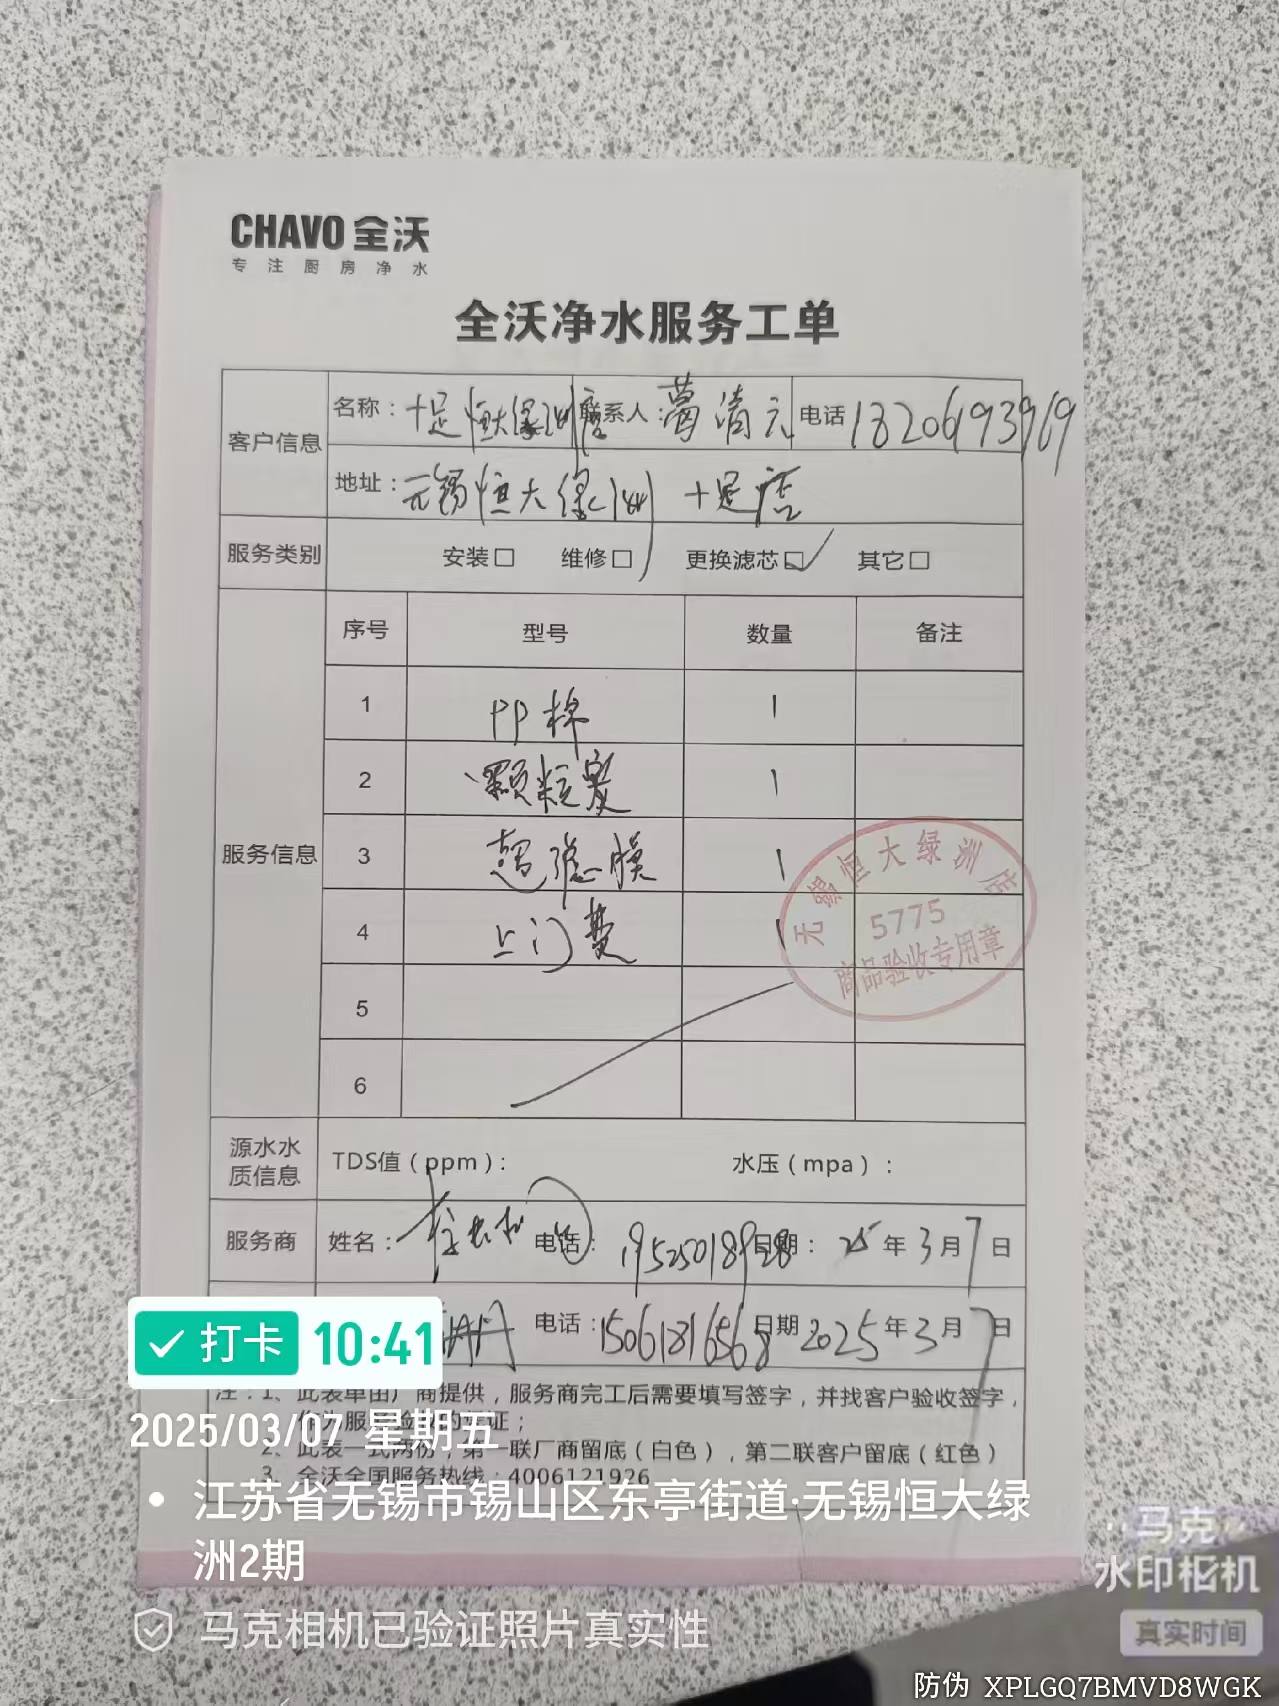 CHAVO 全沃
专注厨房净水
全沃净水服务工单
客户信息
名称：十足恒大绿洲店 联系人： 清云 电话 18206193969
地址：无锡恒大绿洲十足店
服务类别 安装□ 维修□ 更换滤芯☑ 其它□
服务信息
序号 型号 数量 备注
1 PP棉 1
2 颗粒炭 1
3 超滤膜 1
4 上门费 1
5
6
无锡恒大绿洲店
5775
商品验收专用章
源水水质信息 TDS值（ppm）： 水压（mpa）：
服务商 姓名： 电话： 19525018928 日期： 25 年 3 月 7 日
电话：15061816568 日期 2025 年 3 月 7 日
注：1、此表单由厂商提供，服务商完工后需要填写签字，并找客户验收签字，
作为服务验收的凭证；
2、此表一式两份，第一联厂商留底（白色），第二联客户留底（红色）
3、全沃全国服务热线：4006121926
打卡 10:41
2025/03/07 星期五
江苏省无锡市锡山区东亭街道·无锡恒大绿
洲2期
马克相机已验证照片真实性
马克
水印相机
真实时间
防伪 XPLGQ7BMVD8WGK